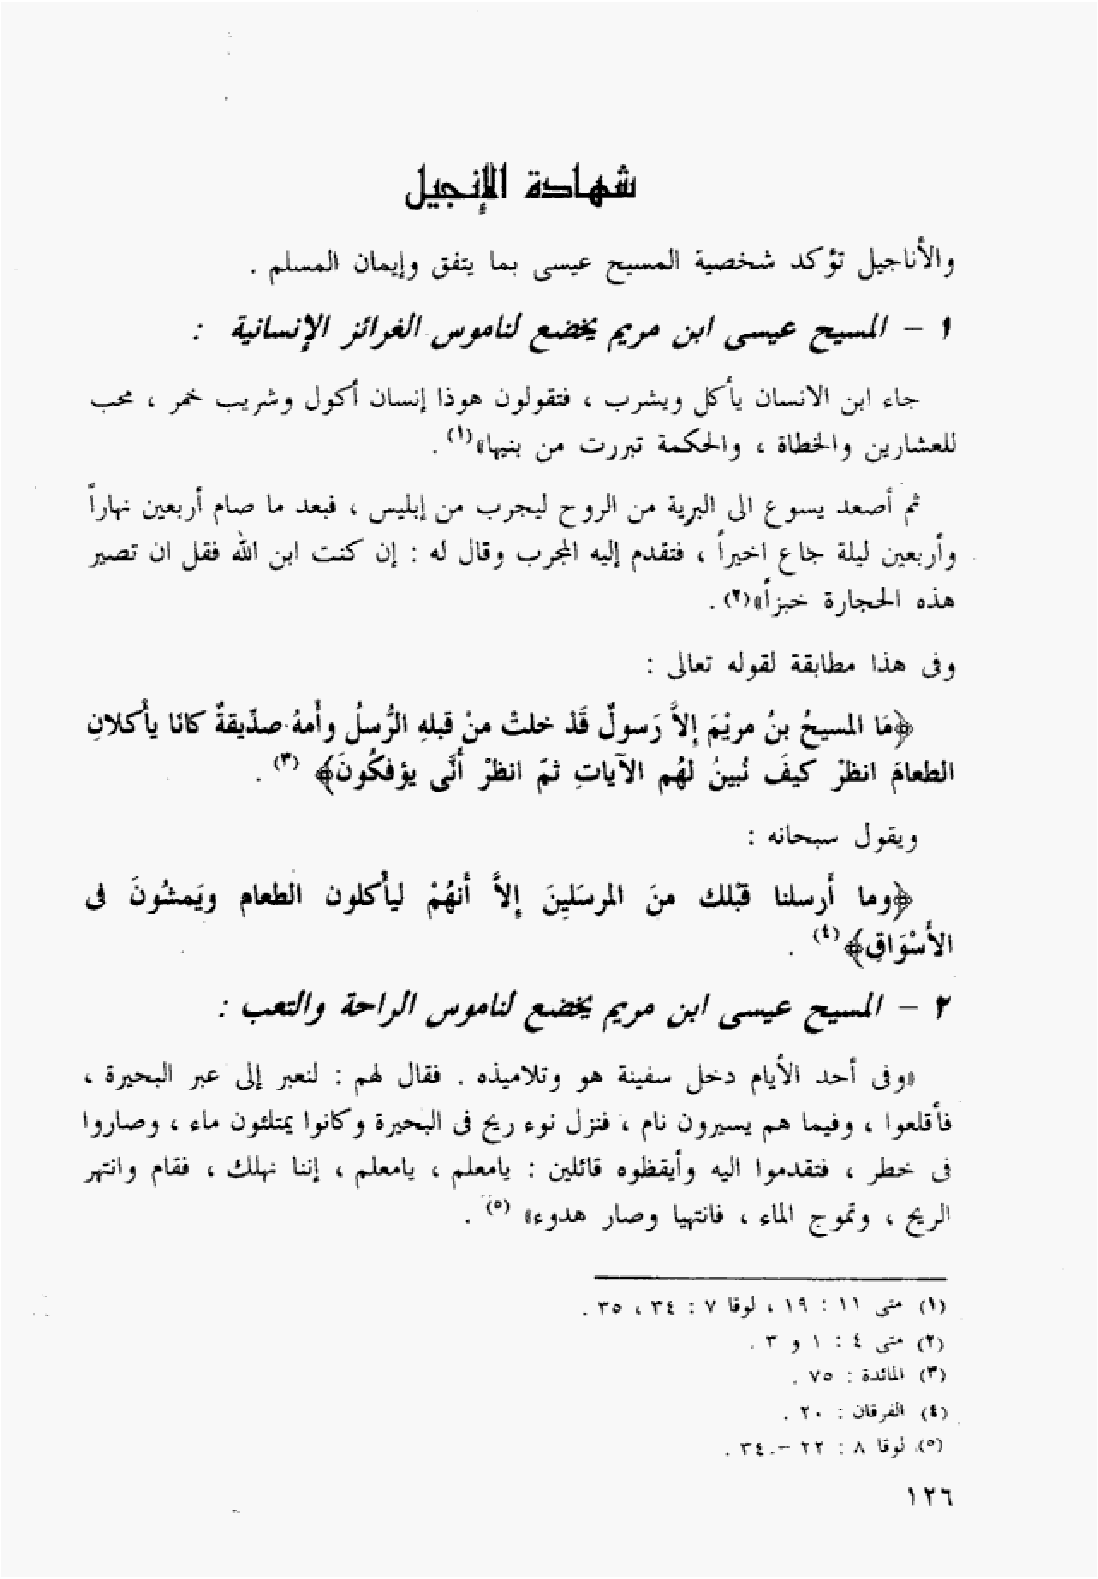 شهادة الإنجيل
والأناجيل تؤكد شخصية المسيح عيسى بما يتفق وإيمان المسلم .
١ - المسيح عيسى ابن مريم يخضع لناموس الغرائز الإنسانية :
جاء ابن الانسان يأكل ويشرب ، فتقولون هوذا إنسان أكول وشريب خمر ، محب
للعشارين والخطاة ، والحكمة تبررت من بنيها»(١) .
ثم أصعد يسوع الى البرية من الروح ليجرب من إبليس ، فبعد ما صام أربعين نهاراً
وأربعين ليلة جاع اخيراً ، فتقدم إليه المجرب وقال له : إن كنت ابن الله فقل ان تصير
هذه الحجارة خبزاً»(٢) .
وفى هذا مطابقة لقوله تعالى :
﴿مَا المسيحُ بنُ مريْمَ إلاَّ رَسولٌ قَدْ خلتْ منْ قبلهِ الرُّسلُ وأُمهُ صدّيقةٌ كانَا يأْكلانِ
الطعامَ انظرْ كيفَ نُبينُ لهُم الآياتِ ثمّ انظرْ أنَّى يؤفكُونَ﴾ (٣) .
ويقول سبحانه :
﴿وما أَرسلنا قبْلك منَ المرسَلِينَ إلاَّ أنهُمْ ليأْكلون الطعام ويَمشُونَ فى
الأسْوَاقِ﴾(٤) .
٢ - المسيح عيسى ابن مريم يخضع لناموس الراحة والتعب :
«وفى أحد الأيام دخل سفينة هو وتلاميذه . فقال لهم : لنعبر إلى عبر البحيرة ،
فأقلعوا ، وفيما هم يسيرون نام ، فنزل نوء ريح فى البحيرة وكانوا يمتلئون ماء ، وصاروا
فى خطر ، فتقدموا اليه وأيقظوه قائلين : يامعلم ، يامعلم ، إننا نهلك ، فقام وانتهر
الريح ، وتموج الماء ، فانتهيا وصار هدوء» (٥) .
(١) متى ١١ : ١٩ ، لوقا ٧ : ٣٤ ، ٣٥ .
(٢) متى ٤ : ١ و ٣ .
(٣) المائدة : ٧٥ .
(٤) الفرقان : ٢٠ .
(٥) لوقا ٨ : ٢٢ - ٣٤ .
١٢٦